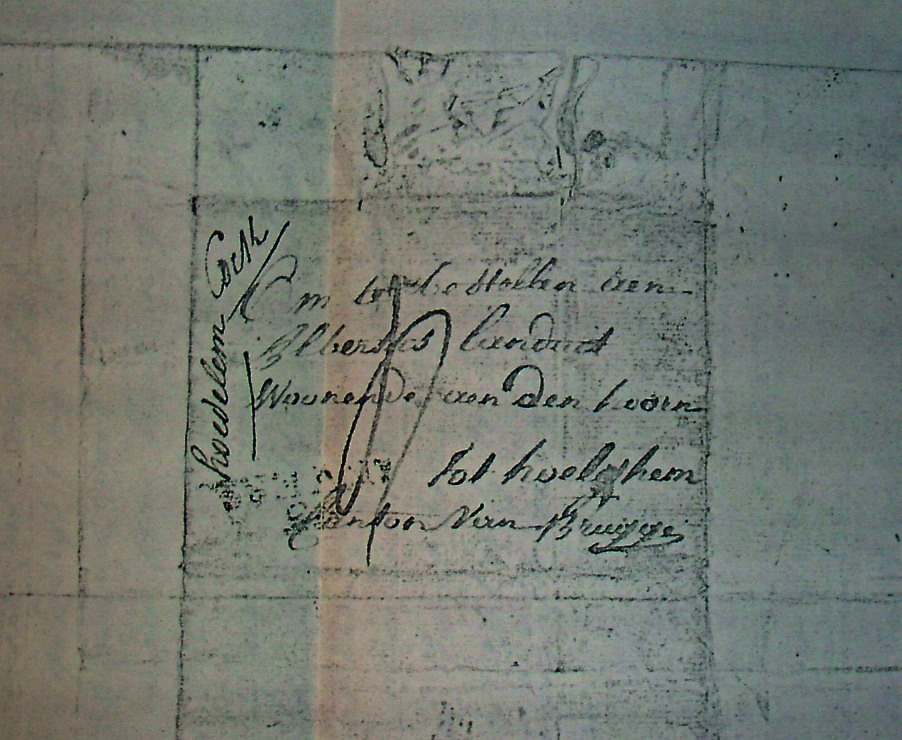 Om te bestellen aen
Albertus landuit
Woonende aen den hoorn
tot hoeleghem
Canton Van Brugge
hoedelem Cock